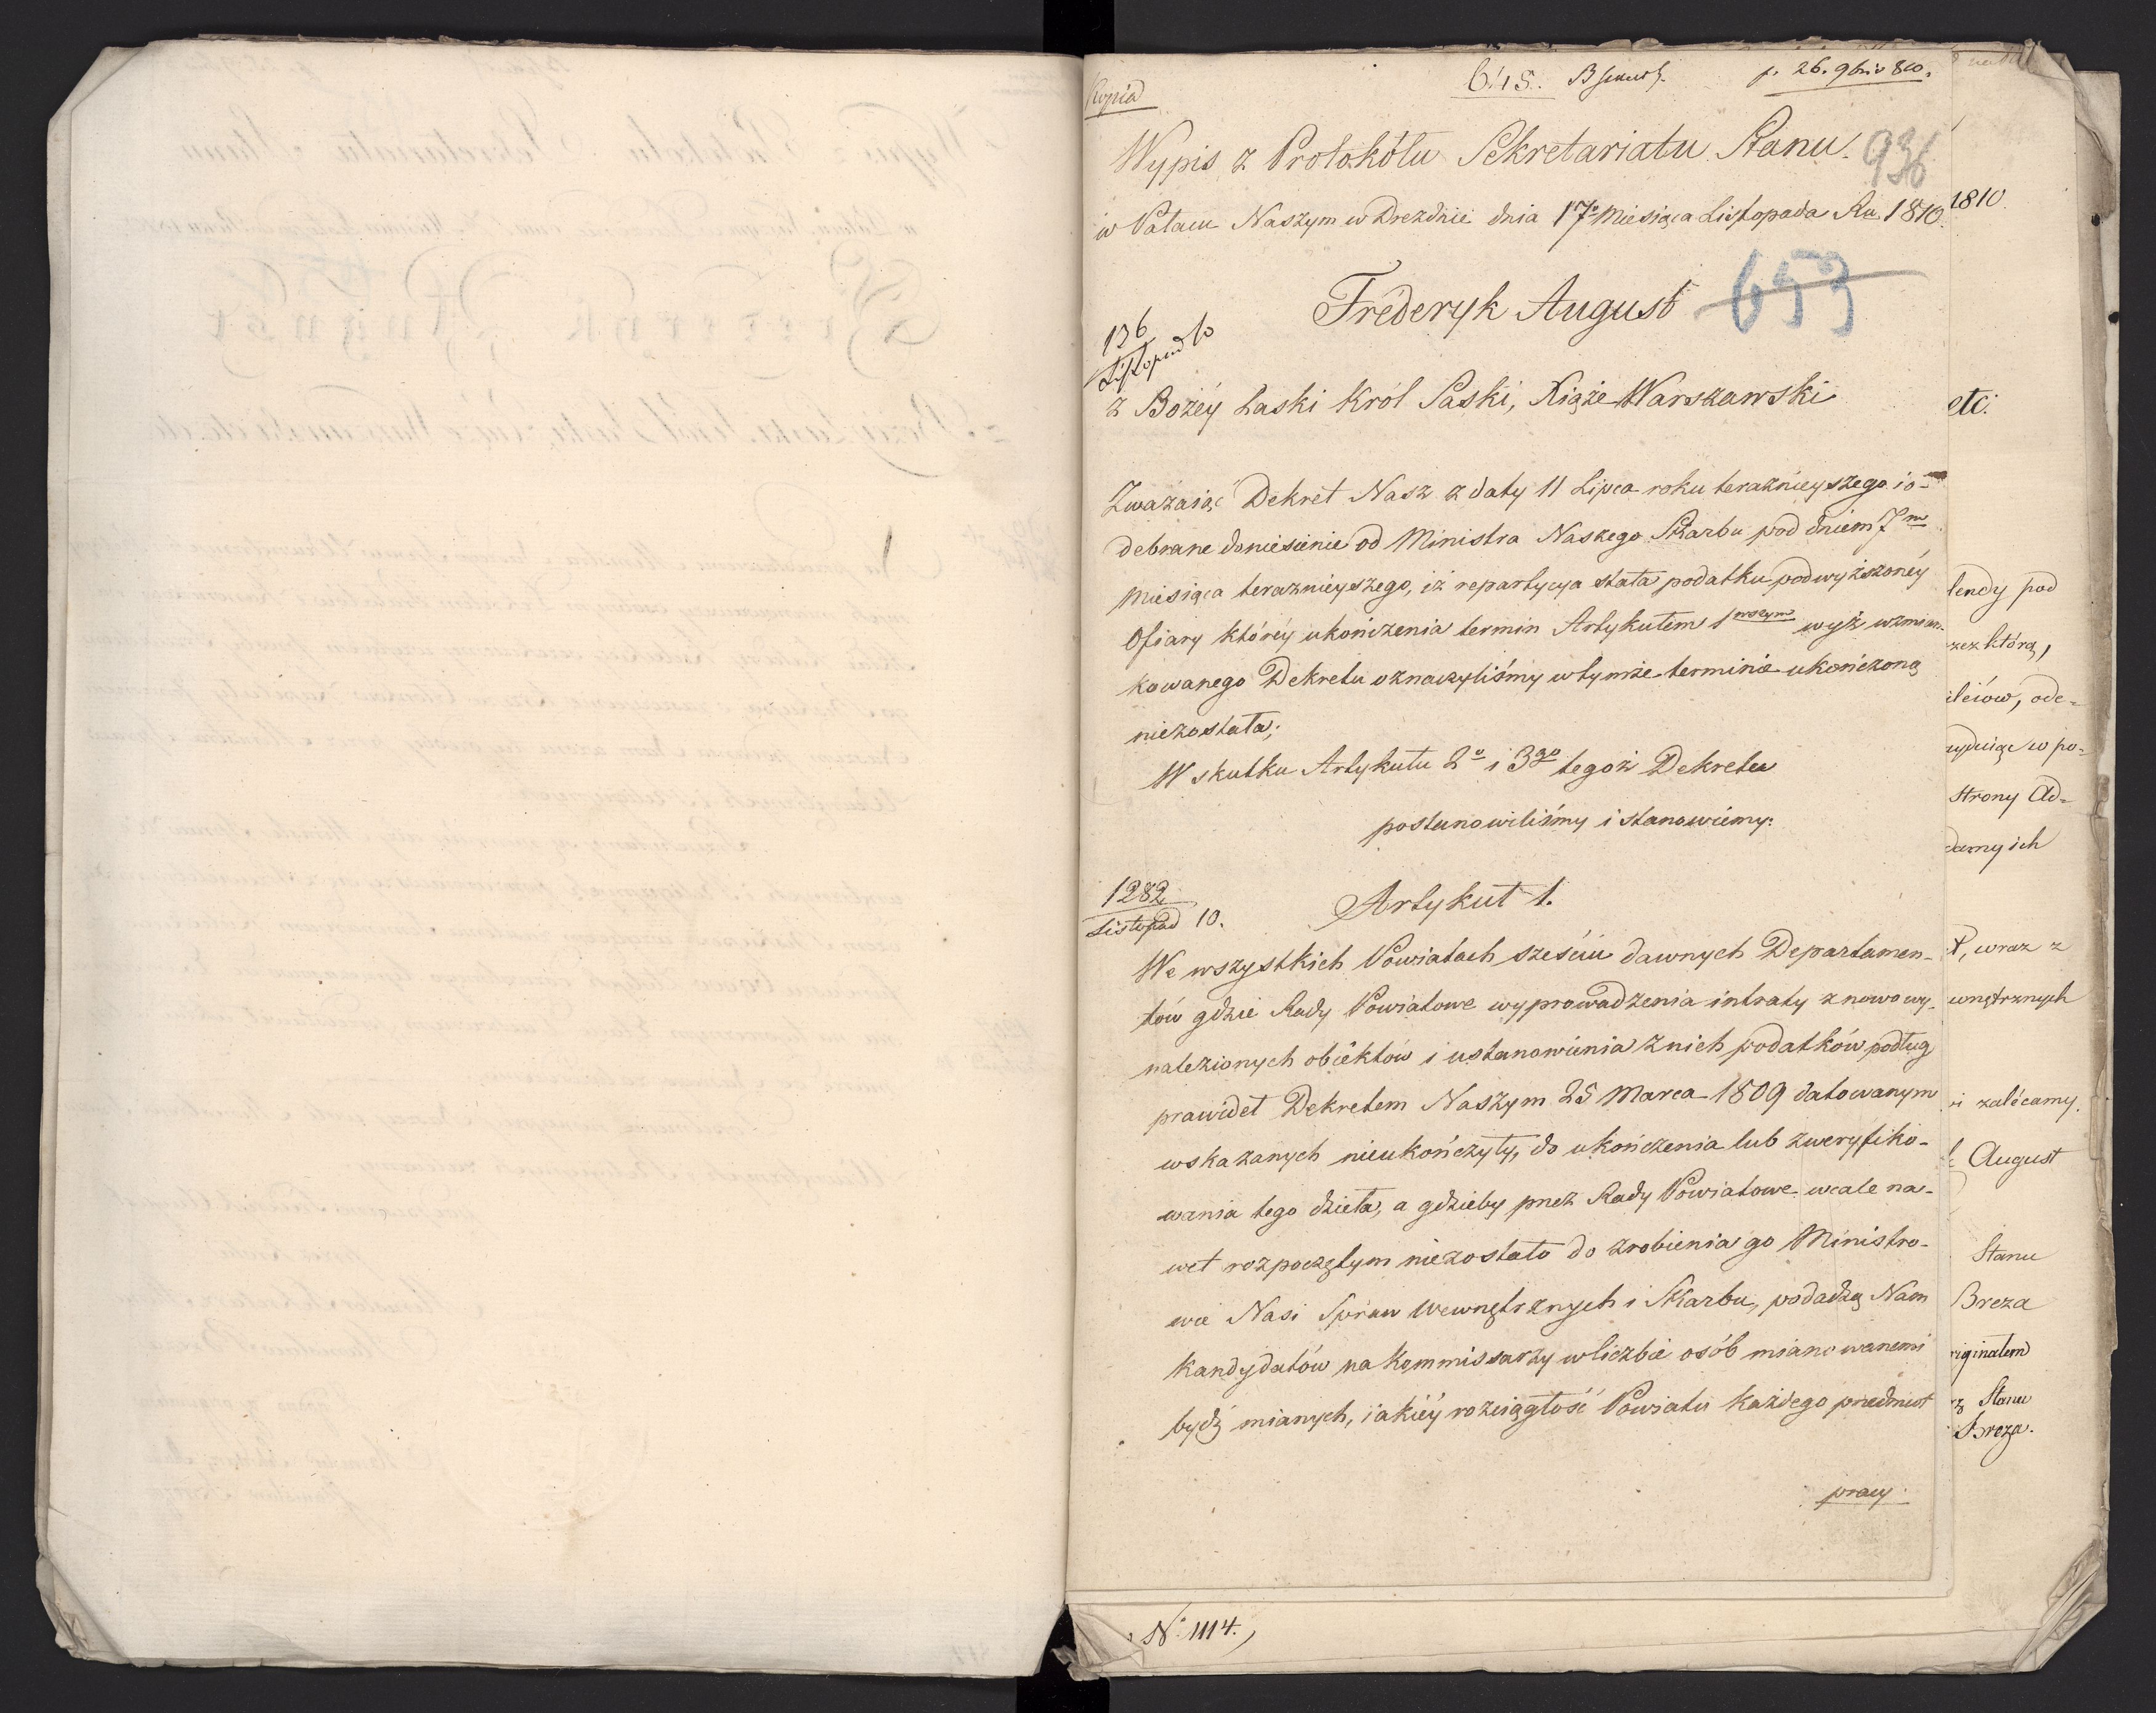 Kopia
645.
p. 26. 9bris 810.
Wypis z Protokółu Sekretariatu Stanu.
936
w Pałacu Naszym w Dreźdnie dnia 17º Miesiąca Listopada Ru 1810.
Frederyk August
653
136
Listopad 10
z Bożéy Łaski Król Saski, Xiąże Warszawski
Zważaiąc Dekret Nasz z daty 11 Lipca roku teraznieyszego i o-
debrane doniesienie od Ministra Naszego Skarbu pod dniem 7m
miesiąca teraznieyszego, iż repartycya stała podatku podwyższonéy
Ofiary któréy ukończenia termin Artykułem 1wszym wyż wzmian-
kowanego Dekretu oznaczyliśmy w tymże terminie ukończoną
niezostała;
W skutku Artykułu 2º i 3go tegoż Dekretu
postanowiliśmy i stanowiemy:
1282
Listopad 10.
Artykuł 1.
We wszystkich Powiatach sześciu dawnych Departamen-
tów gdzie Rady Powiatowe wyprowadzenia intraty z nowo wy-
nalezionych obiektów i ustanowienia z nich podatków podług
prawideł Dekretem Naszym 25 Marca 1809 datowanym
wskazanych nieukończyły, do ukończenia lub zweryfiko-
wania tego dzieła, a gdzieby przez Rady Powiatowe wcale na-
wet rozpoczętym niezostało do zrobienia go Ministro-
wie Nasi Spraw Wewnętrznych i Skarbu, podadzą Nam
Kandydatów na Kommissarzy w liczbie osób mianowanemi
bydź mianych, iakiéy rozciągłość Powiatu każdego przedmiot
pracy
N. 1114.
1810.
etc.
lendy pod
zez którą,
ode-
w po-
strony Ad-
damy ich
t, wraz z
wnętrznych
i zalécamy.
August
Stanu
Breza
riginałem
rz Stanu
Breza.